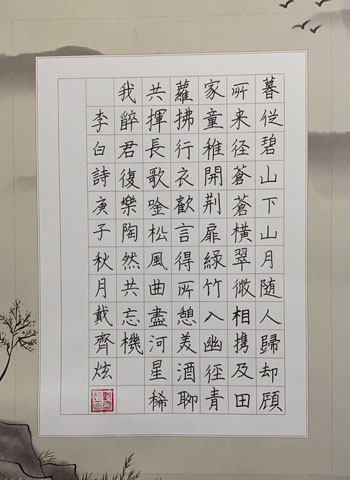 暮從碧山下山月随人歸却顧
所来径蒼蒼横翠微相携及田
家童稚開荆扉緑竹入幽徑青
蘿拂行衣歡言得所憩美酒聊
共揮長歌唫松風曲盡河星稀
我醉君復樂陶然共忘機
李白詩庚子秋月戴齊炫